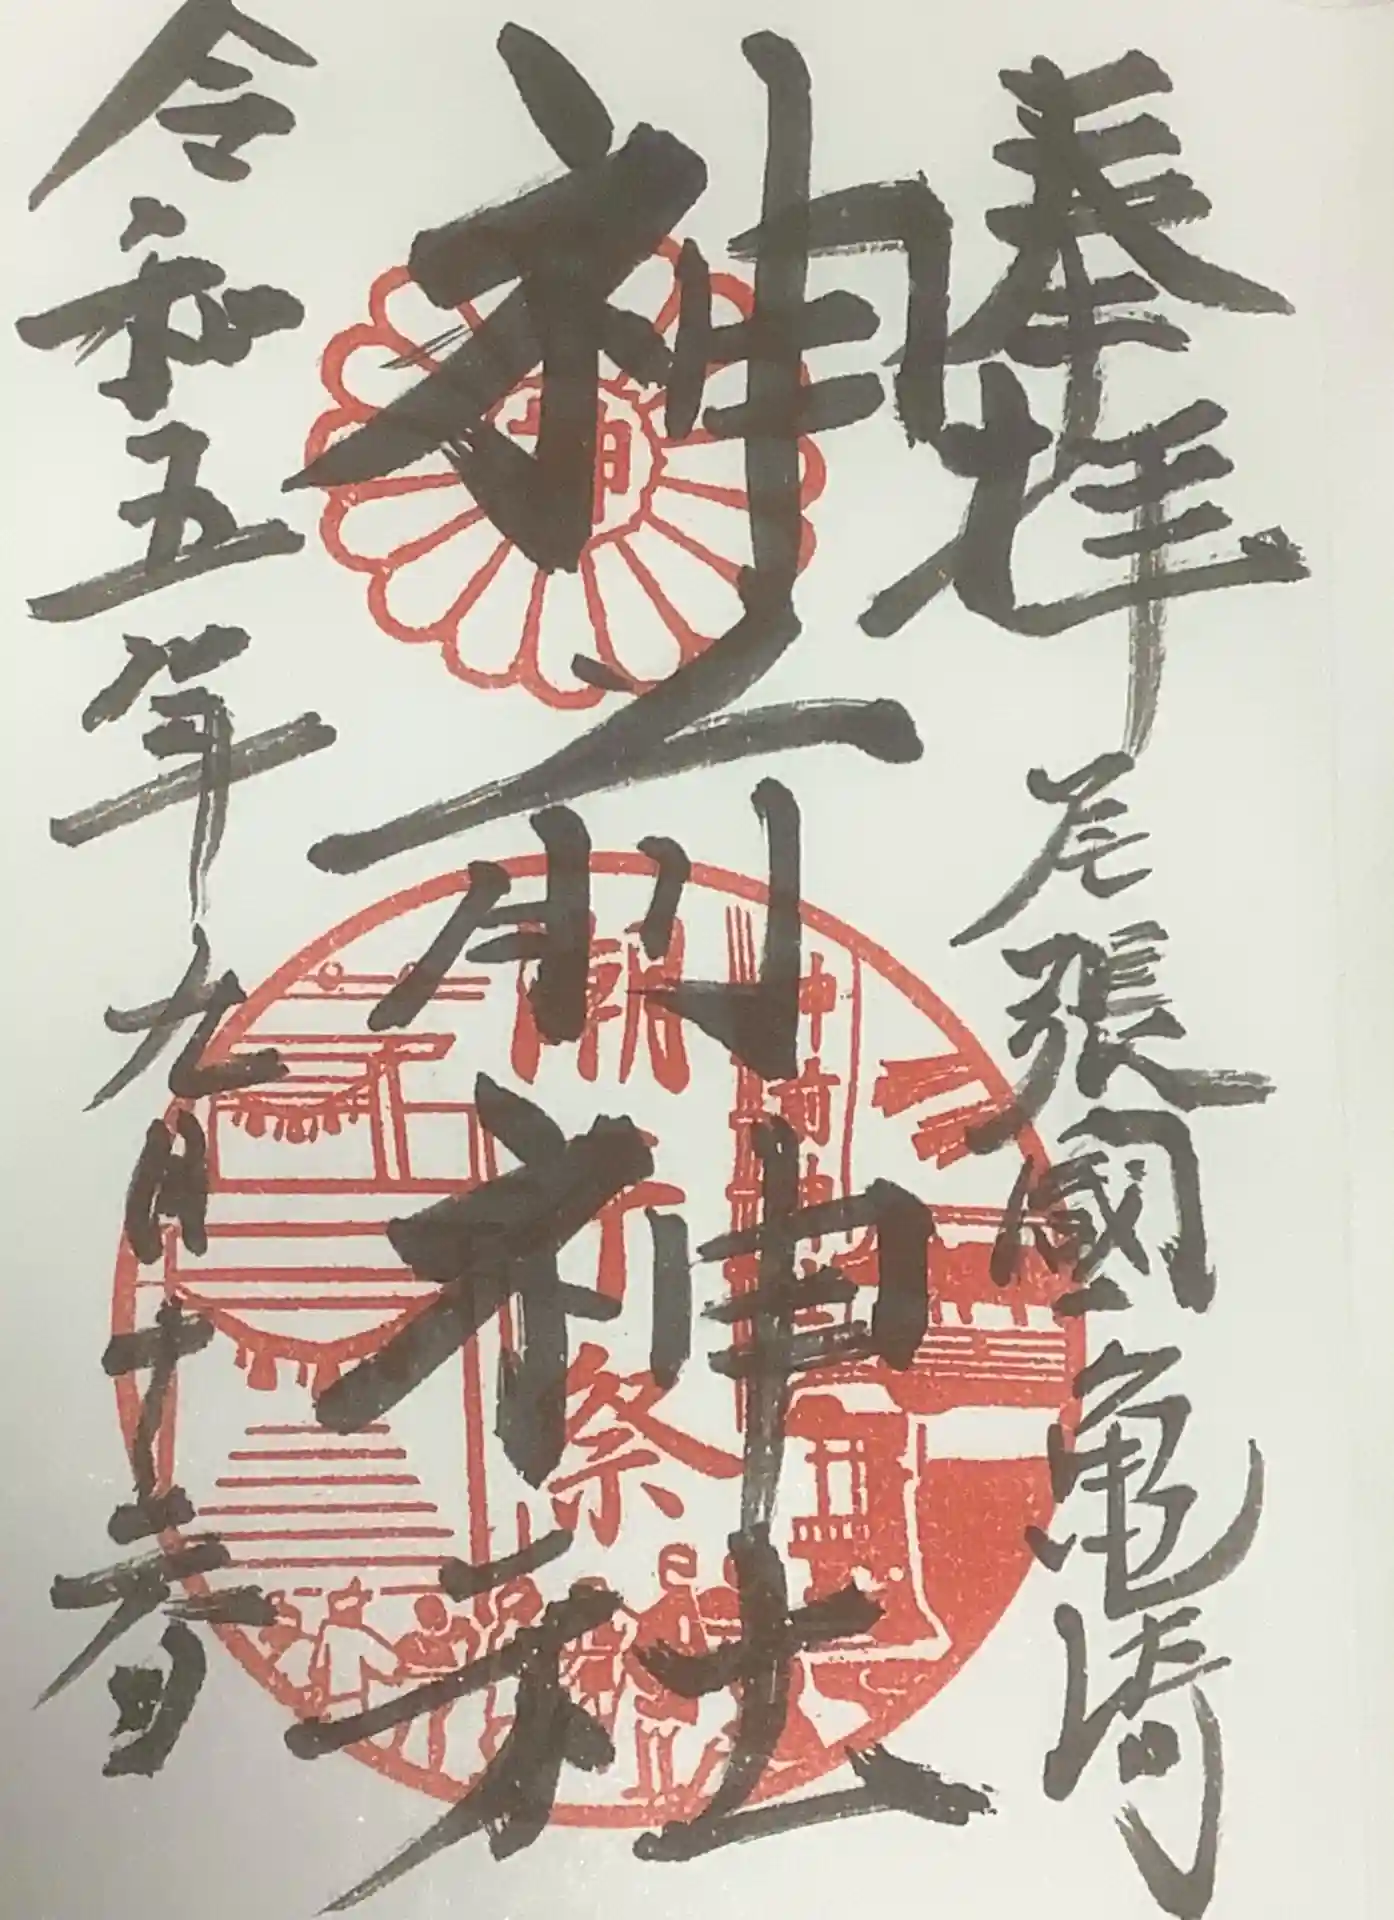 奉拝 尾張國亀崎
神前神社
令和五年九月十六日
神前神社
潮干祭